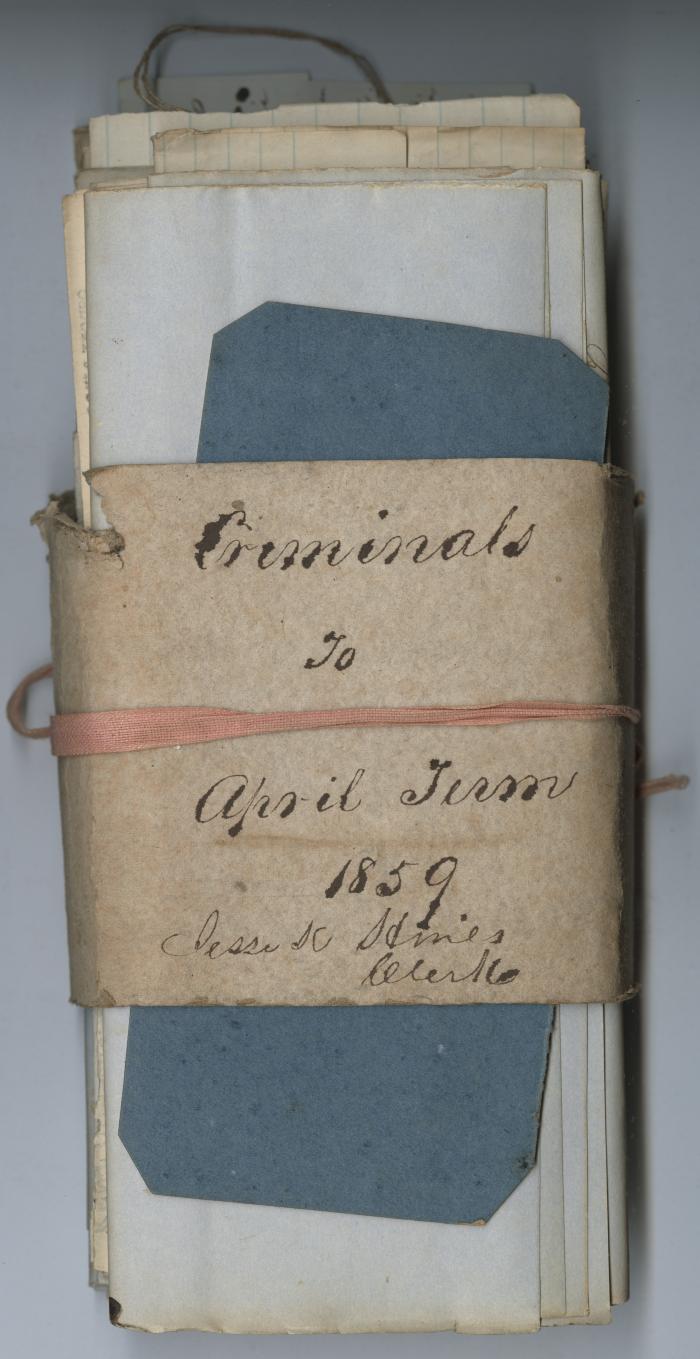 Criminals
To
April Term
1859
Jesse K Hines
Clerk